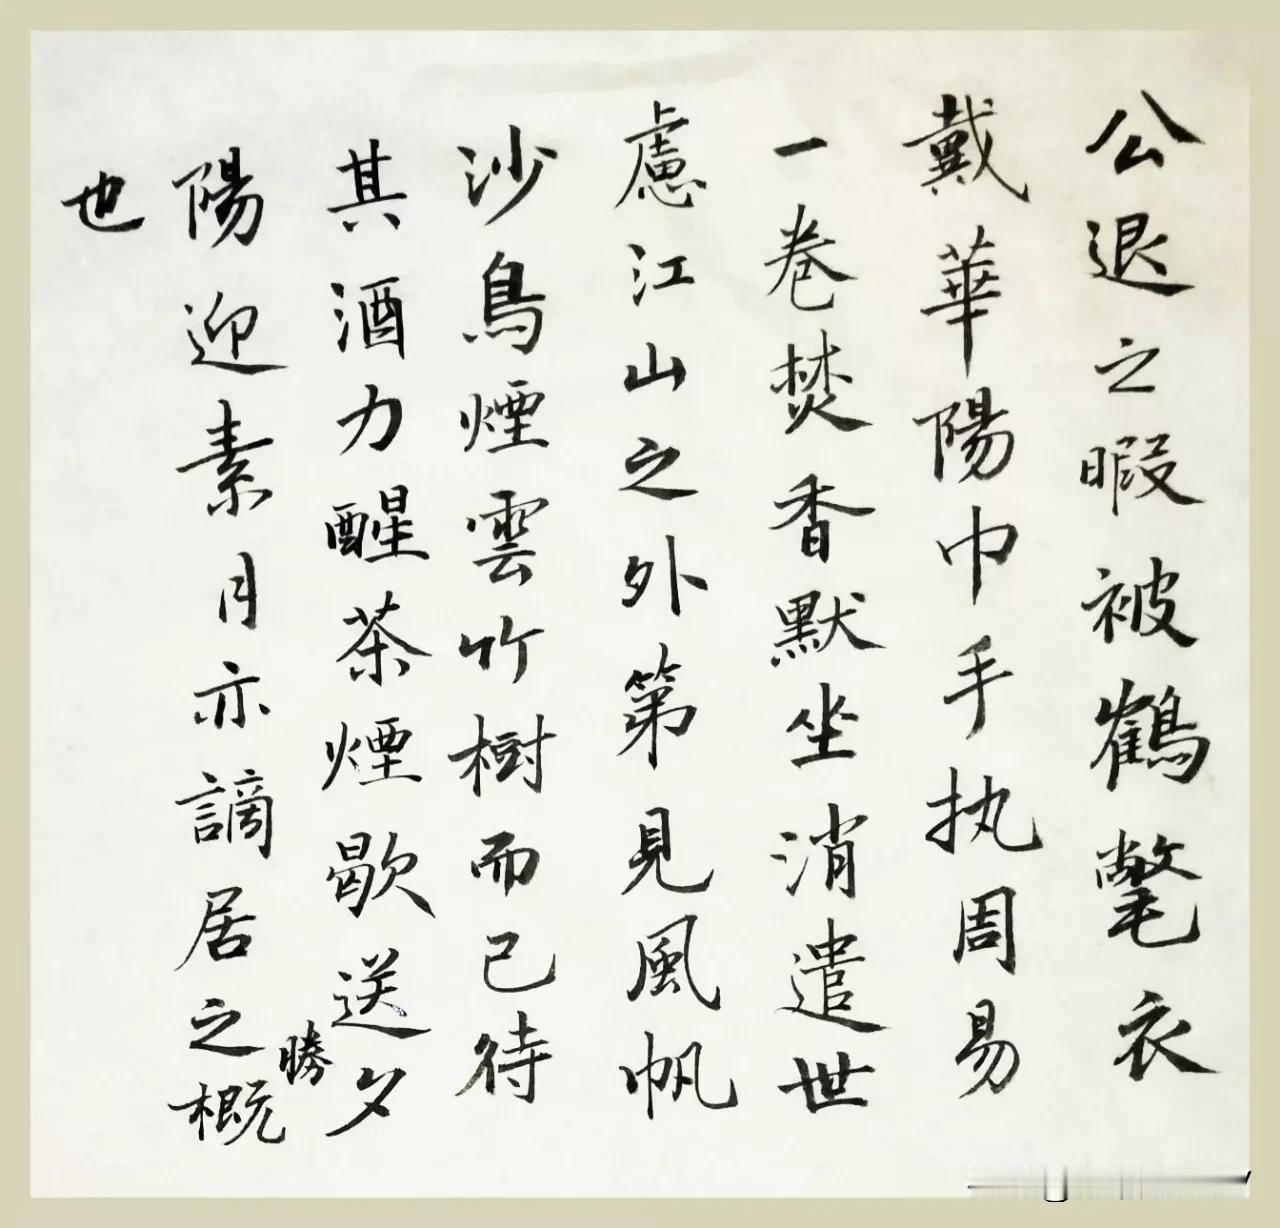 公退之暇被鶴氅衣
戴華陽巾手执周易
一卷焚香默坐消遣世
慮江山之外第見風帆
沙鳥煙雲竹樹而已待
其酒力醒茶煙歇送夕
陽迎素月亦謫居之勝概
也